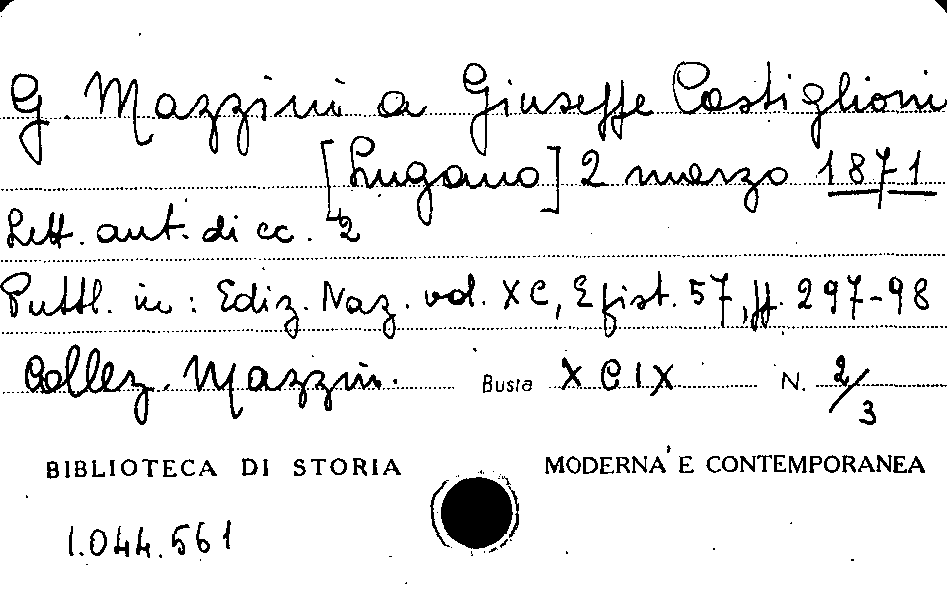 G. Mazzini a Giuseppe Castiglioni
[Lugano] 2 marzo 1871
Lett. aut. di cc. 2
Pubbl. in: Ediz. Naz. vol. XC, Epist. 57, pp. 297-98
Collez. Mazzin. Busta XCIX N. 2/3
BIBLIOTECA DI STORIA MODERNA E CONTEMPORANEA
1.044.561